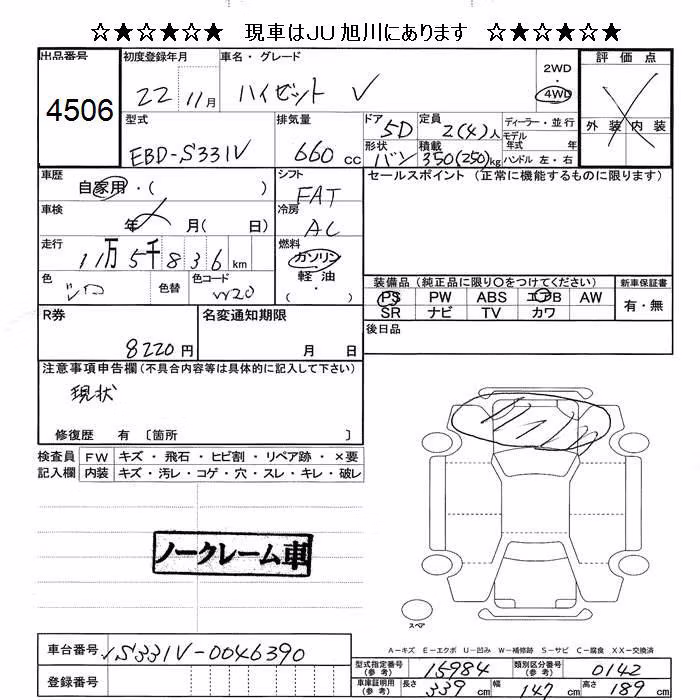 ☆★☆★☆★ 現車はJU旭川にあります ☆★☆★☆★
出品番号
4506
初度登録年月
22 11月
車名・グレード
ハイゼット V
2WD
4WD
評価点
外装 内装
型式
EBD-S331V
排気量
660 cc
ドア
5D
定員
2(4)人
ディーラー・並行
形状
バン
積載
350(250)kg
モデル年式 年
ハンドル 左・右
車歴
自家用・( )
シフト
FAT
セールスポイント (正常に機能するものに限ります)
車検
年 月( 日)
冷房
AC
走行
11万5千836 km
燃料
ガソリン
軽油
( )
色
シロ
色替
色コード
W20
装備品 (純正品に限り○をつけてください)
PS PW ABS エアB AW
SR ナビ TV カワ
新車保証書
有・無
後日品
R券
8220円
名変通知期限
月 日
注意事項申告欄(不具合内容等は具体的に記入して下さい)
現状
修復歴 有 〔箇所 〕
検査員記入欄
FW キズ・飛石・ヒビ割・リペア跡・×要
内装 キズ・汚レ・コゲ・穴・スレ・キレ・破レ
ノークレーム車
スペア
A-キズ E-エクボ U-凹み W-補修跡 S-サビ C-腐食 XX-交換済
車台番号
S331V-0046390
登録番号
型式指定番号(参考)
15984
類別区分番号(参考)
0142
車庫証明用(参考)
長さ 339 cm
幅 147 cm
高さ 189 cm